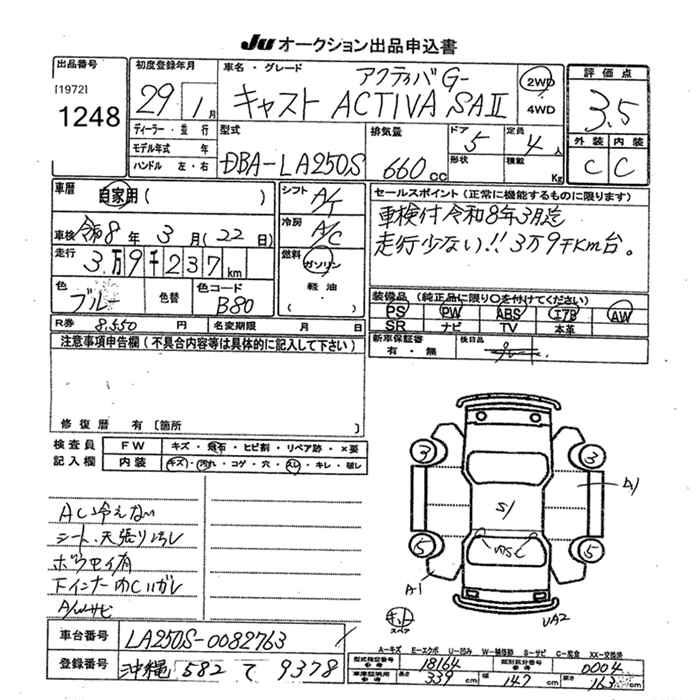 JU オークション出品申込書
出品番号
[1972]
1248
初度登録年月
29 1月
車名・グレード
アクティバG
キャスト ACTIVA SAII
2WD
4WD
評価点
3.5
外装 内装
C C
ディーラー・並行
モデル年式 年
ハンドル 左・右
型式
DBA-LA250S
排気量
660 cc
ドア 5
形状
定員 4 人
積載 Kg
車歴
自家用 ( )
車検 令和8年 3月(22日)
走行 3万9千237km
色 ブルー
色替
色コード B80
シフト A/T
冷房 A/C
燃料 ガソリン
軽油
セールスポイント(正常に機能するものに限ります)
車検付 令和8年3月迄
走行少ない!! 3万9千KM台。
装備品(純正品に限り○を付けてください)
PS PW ABS エアB AW
SR ナビ TV 本革
R券 8.550 円
名変期限 月 日
新車保証書
有・無
後日品
注意事項申告欄(不具合内容等は具体的に記入して下さい)
修復歴 有 [箇所
検査員
記入欄
FW キズ・飛石・ヒビ割・リペア跡・×要
内装 キズ・汚れ・コゲ・穴・スレ・キレ・破レ
AC冷えない
シート、天張り汚レ
ボウセイ有
A/Wサビ
3 3
5 5
S1
A1
A-1
UA2
キ
スペア
車台番号 LA250S-0082763
登録番号 沖縄 582 て 9378
A-キズ E-エクボ U-凹み W-補修跡 S-サビ C-腐食 XX-交換済
型式指定番号 18164
類別区分番号 0004
長さ 339 cm
幅 147 cm
高さ 163 cm